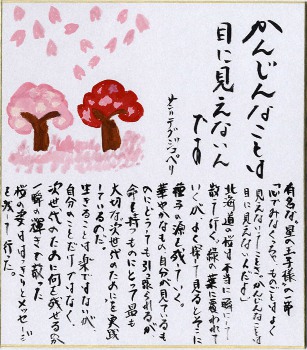 かんじんなことは
目に見えないん
です
サンテグジュペリ
有名な星の王子様の一節
「心でみなくちゃ、ものごとはよく
見えないってことさ。かんじんなことは
目に見えないんだよ」
北海道の桜は本当に瞬にして
散って行く。緑の葉に変われて
いくが、よく探て見るとそこに
種子の源を残していく。
華やかなもの自分が見ているも
のにどうしても引張られるが
命を持つものにとって最も
大切な次世代のためにを実践
しているのだ。
生きることは楽ではないが
自分のことだけではなく、
次世代のために何を残せるか
一瞬の輝きを散った
桜の姿ははっきりとメッセージ
を残して行った。